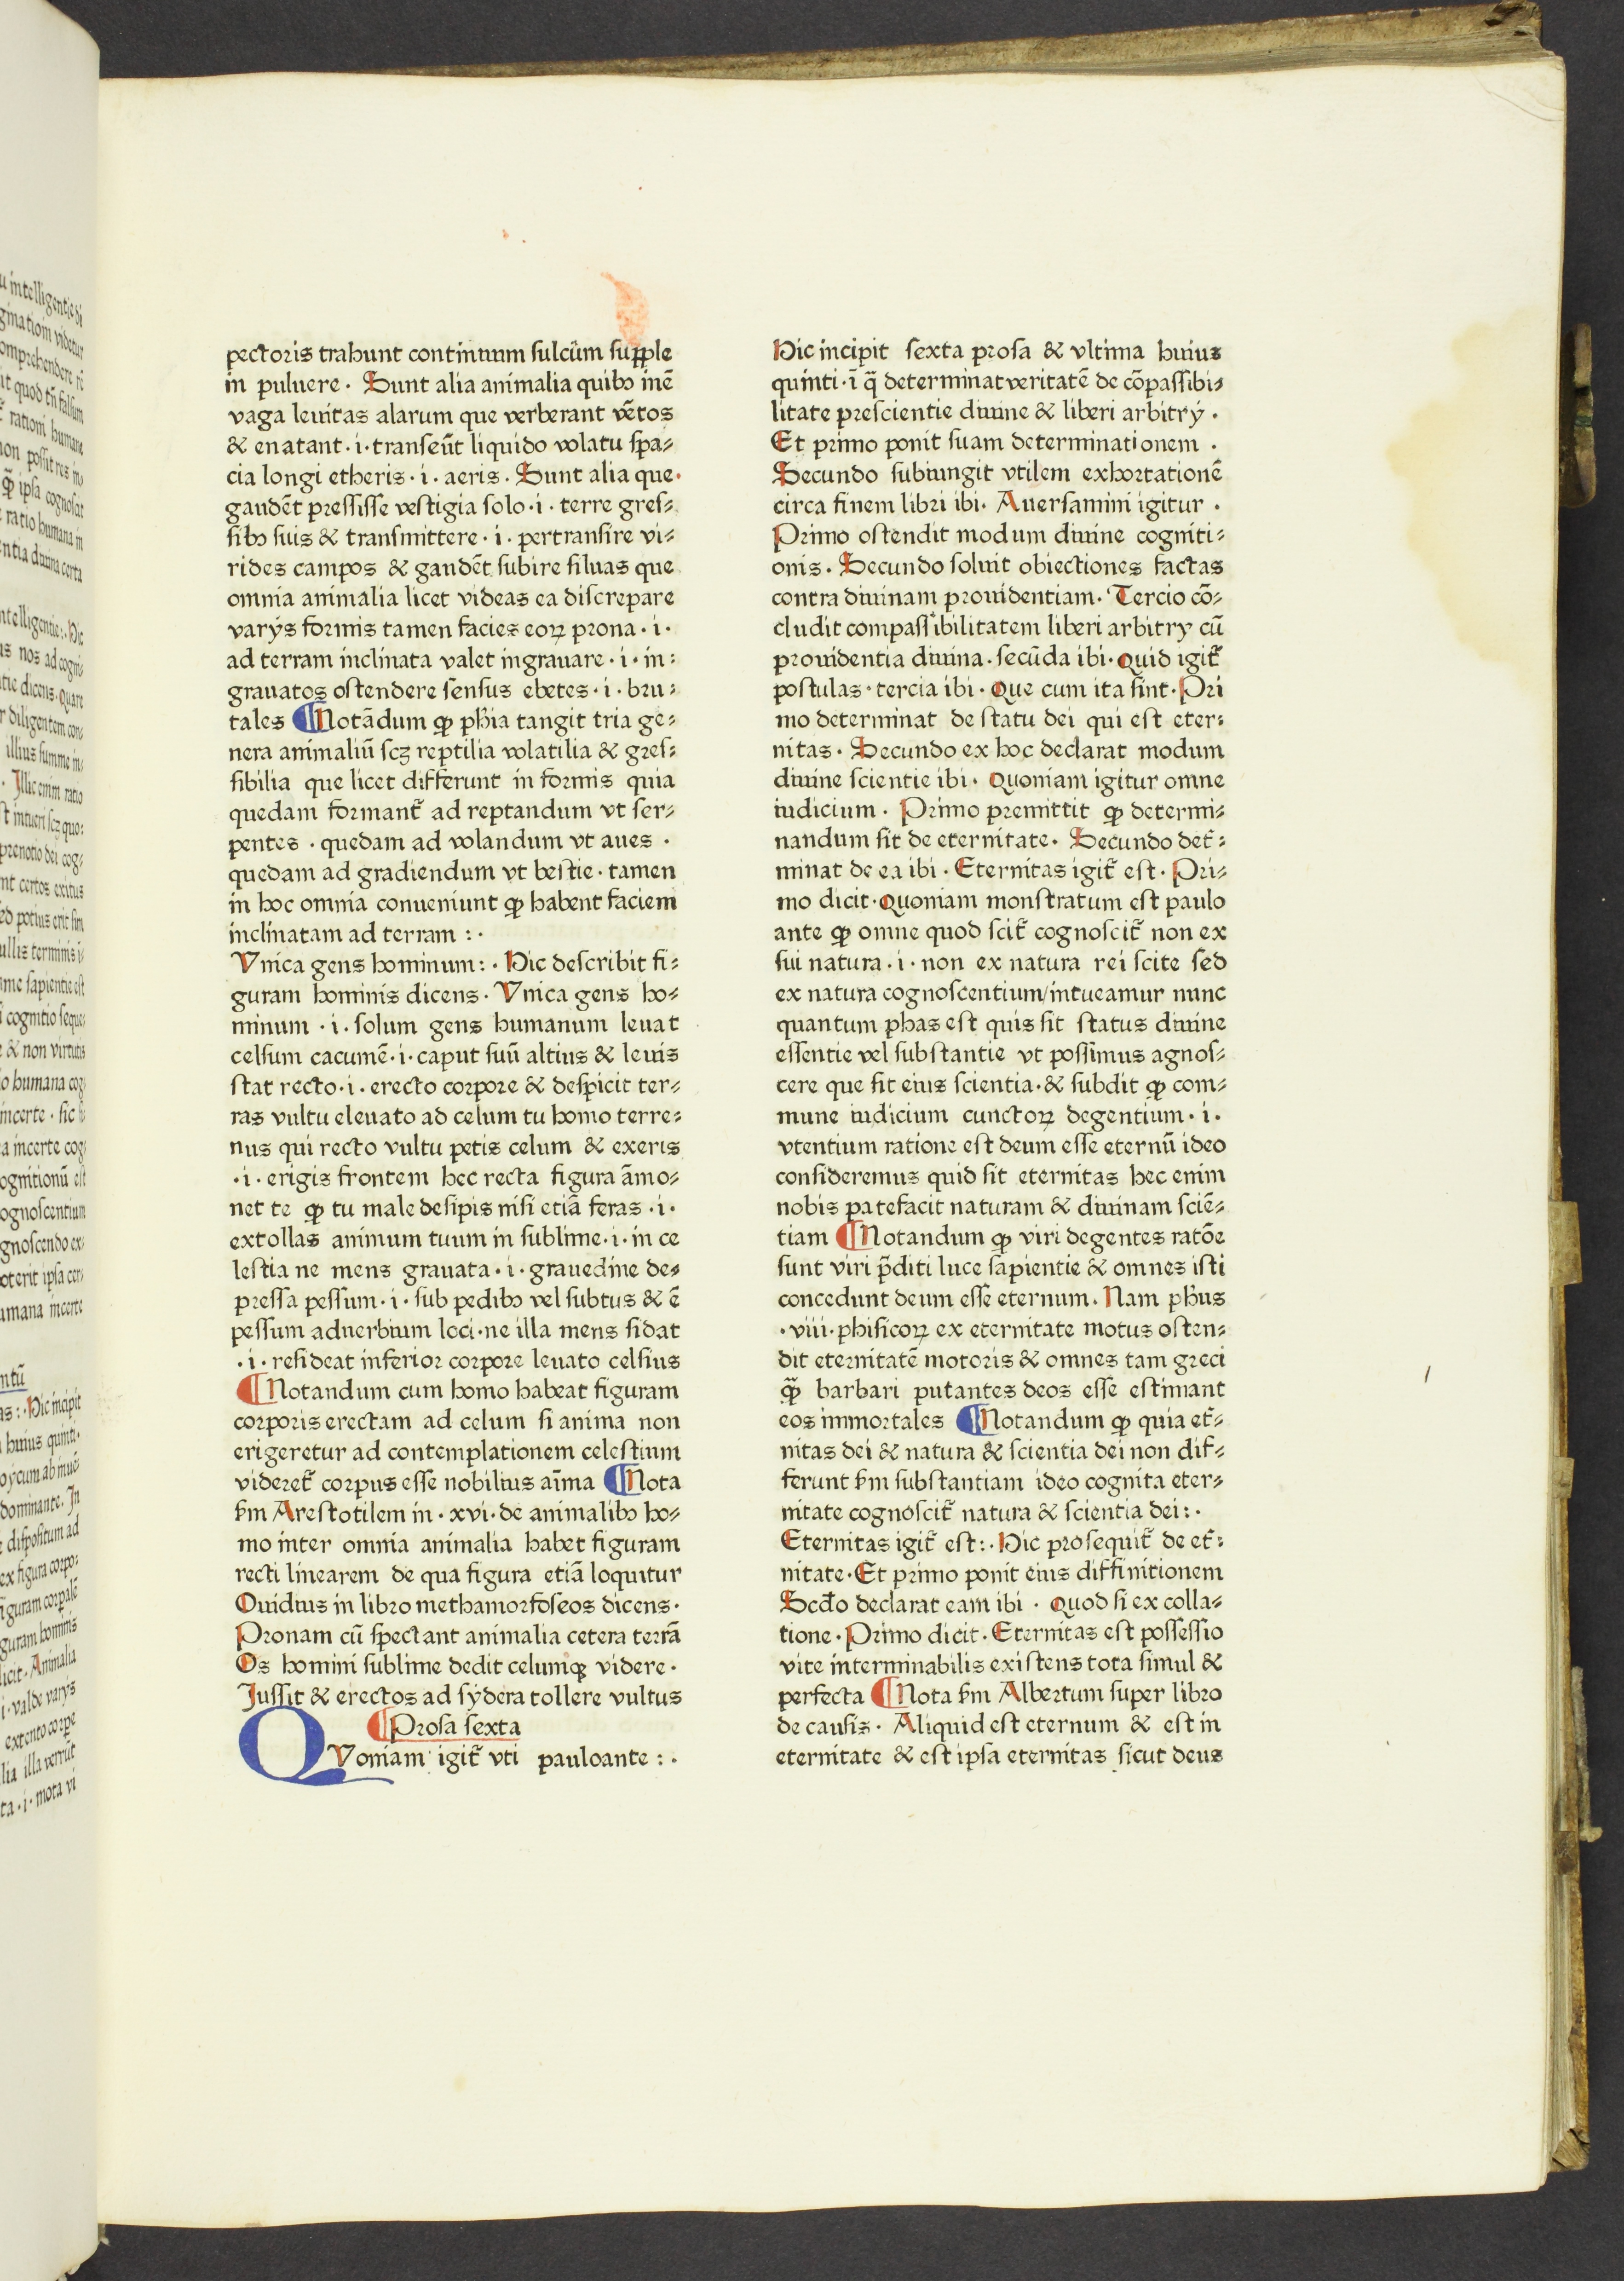 pectoris trahunt continuum sulcūm suꝑple
in puluere · Sunt alia animalia quibꝫ inē
vaga leuitas alarum que verberant vētos
& enatant · i · transeūt liquido volatu spa⸗
cia longi etheris · i · aeris · Sunt alia que·
gaudēt pressisse vestigia solo · i · terre gres⸗
sibꝫ suis & transmittere · i · pertransire vi⸗
rides campos & gaudēt subire siluas que
omnia animalia licet videas ea discrepare
varÿs formis tamen facies eoꝝ prona · i ·
ad terram inclinata valet ingrauare · i · in⸗
grauatos ostendere sensus ebetes · i · bru⸗
tales ¶ Notādum ꝙ phia tangit tria ge⸗
nera animaliū scꝫ reptilia volatilia & gres⸗
sibilia que licet differunt in formis quia
quedam formant᷑ ad reptandum vt ser⸗
pentes · quedam ad volandum vt aues ·
quedam ad gradiendum vt bestie · tamen
in hoc omnia conueniunt ꝙ habent faciem
inclinatam ad terram : ·
Vnica gens hominum: · Hic describit fi⸗
guram hominis dicens · Vnica gens ho⸗
minum · i · solum gens humanum leuat
celsum cacumē · i · caput suū altius & leuis
stat recto · i · erecto corpore & despicit ter⸗
ras vultu eleuato ad celum tu homo terre⸗
nus qui recto vultu petis celum & exeris
· i · erigis frontem hec recta figura āmo⸗
net te ꝙ tu male desipis nisi etiā feras · i ·
extollas animum tuum in sublime · i · in ce
lestia ne mens grauata · i · grauedine de⸗
pressa pessum · i · sub pedibꝫ vel subtus & ē
pessum aduerbium loci · ne illa mens sidat
· i · resideat inferior corpore leuato celsius
¶ Notandum cum homo habeat figuram
corporis erectam ad celum si anima non
erigeretur ad contemplationem celestium
videret᷑ corpus esse nobilius aīma ¶ Nota
ẜm Arestotilem in · xvi · de animalibꝫ ho⸗
mo inter omnia animalia habet figuram
recti linearem de qua figura etiā loquitur
Ouidius in libro methamorfoseos dicens ·
Pronam cū spectant animalia cetera terrā
Os homini sublime dedit celumqꝫ videre ·
Jussit & erectos ad sÿdera tollere vultus
¶ Prosa sexta
QVoniam igit᷑ vti pauloante : ·
Hic incipit sexta prosa & vltima huius
quinti · ī q̄ determinat veritatē de cōpassibi⸗
litate prescientie diuine & liberi arbitrÿ ·
Et primo ponit suam determinationem ·
Secundo subiungit vtilem exhortationē
circa finem libri ibi · Auersamini igitur ·
Primo ostendit modum diuine cogniti⸗
onis · Secundo soluit obiectiones factas
contra diuinam prouidentiam · Tercio cō⸗
cludit compassibilitatem liberi arbitry cū
prouidentia diuina · secūda ibi · Quid igit᷑
postulas · tercia ibi · Que cum ita sint · Pri
mo determinat de statu dei qui est eter⸗
nitas · Secundo ex hoc declarat modum
diuine scientie ibi · Quoniam igitur omne
iudicium · Primo premittit ꝙ determi⸗
nandum sit de eternitate · Secundo det᷑⸗
minat de ea ibi · Eternitas igit᷑ est · Pri⸗
mo dicit · Quoniam monstratum est paulo
ante ꝙ omne quod scit᷑ cognoscit᷑ non ex
sui natura · i · non ex natura rei scite sed
ex natura cognoscentium/intueamur nunc
quantum phas est quis sit status diuine
essentie vel substantie vt possimus agnos⸗
cere que sit eius scientia · & subdit ꝙ com⸗
mune iudicium cunctoꝝ degentium · i ·
vtentium ratione est deum esse eternū ideo
consideremus quid sit eternitas hec enim
nobis patefacit naturam & diuinam sciē⸗
tiam ¶ Notandum ꝙ viri degentes ratōe
sunt viri p̄diti luce sapientie & omnes isti
concedunt deum esse eternum · Nam phus
· viii · phisicoꝝ ex eternitate motus osten⸗
dit eternitatē motoris & omnes tam greci
ꝙ̄ barbari putantes deos esse estimant
eos immortales ¶ Notandum ꝙ quia et᷑⸗
nitas dei & natura & scientia dei non dif⸗
ferunt ẜm substantiam ideo cognita eter⸗
nitate cognoscit᷑ natura & scientia dei : ·
Eternitas igit᷑ est : · Hic prosequit᷑ de et᷑⸗
nitate · Et primo ponit eius diffinitionem
Scd̄o declarat eam ibi · Quod si ex colla⸗
tione · Primo dicit · Eternitas est possessio
vite interminabilis existens tota simul &
perfecta ¶ Nota ẜm Albertum super libro
de causis · Aliquid est eternum & est in
eternitate & est ipsa eternitas sicut deus